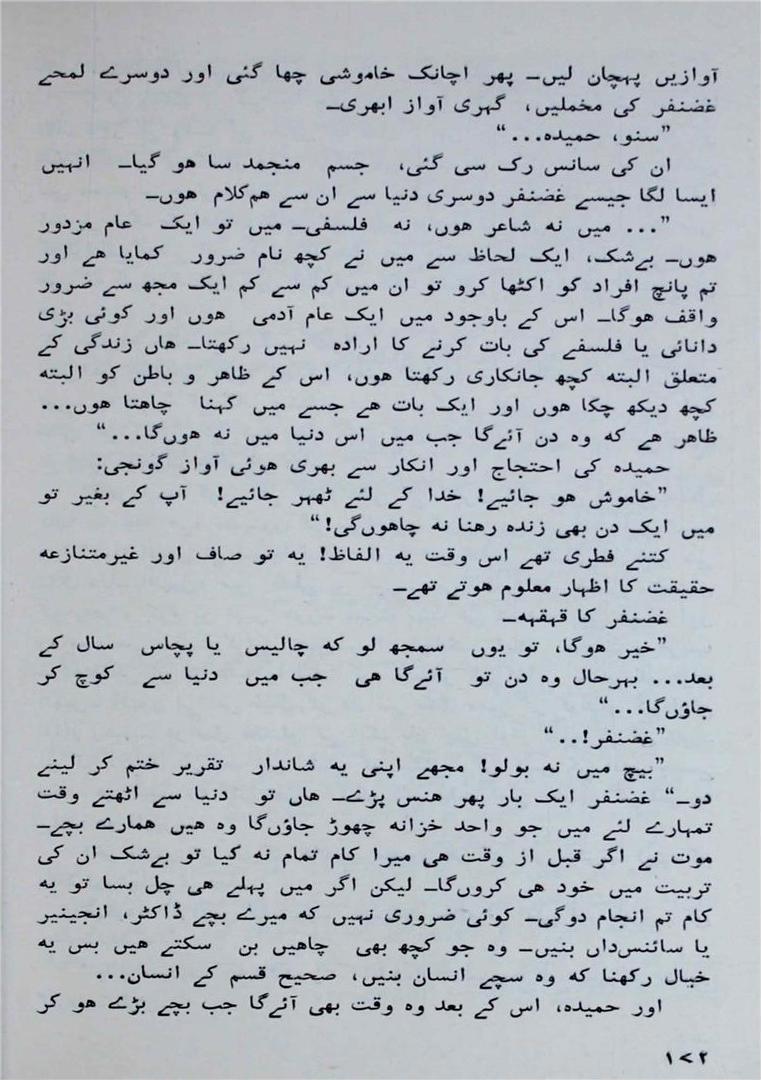 آوازیں پہچان لیں۔ پھر اچانک خاموشی چھا گئی اور دوسرے لمحے
غضنفر کی مخملیں، گہری آواز ابھری۔
”سنو، حمیدہ...“
ان کی سانس رک سی گئی، جسم منجمد سا ہو گیا۔ انہیں
ایسا لگا جیسے غضنفر دوسری دنیا سے ان سے ہم‌کلام ہوں۔
”... میں نہ شاعر ہوں، نہ فلسفی۔ میں تو ایک عام مزدور
ہوں۔ بے‌شک، ایک لحاظ سے میں نے کچھ نام ضرور کمایا ہے اور
تم پانچ افراد کو اکٹھا کرو تو ان میں کم سے کم ایک مجھ سے ضرور
واقف ہوگا۔ اس کے باوجود میں ایک عام آدمی ہوں اور کوئی بڑی
دانائی یا فلسفے کی بات کرنے کا ارادہ نہیں رکھتا۔ ہاں زندگی کے
متعلق البتہ کچھ جانکاری رکھتا ہوں، اس کے ظاہر و باطن کو البتہ
کچھ دیکھ چکا ہوں اور ایک بات ہے جسے میں کہنا چاہتا ہوں...
ظاہر ہے کہ وہ دن آئے‌گا جب میں اس دنیا میں نہ ہوں‌گا...“
حمیدہ کی احتجاج اور انکار سے بھری ہوئی آواز گونجی:
”خاموش ہو جائیے! خدا کے لئے ٹھہر جائیے! آپ کے بغیر تو
میں ایک دن بھی زندہ رہنا نہ چاہوں‌گی!“
کتنے فطری تھے اس وقت یہ الفاظ! یہ تو صاف اور غیرمتنازعہ
حقیقت کا اظہار معلوم ہوتے تھے۔
غضنفر کا قہقہہ۔
”خیر ہوگا، تو یوں سمجھ لو کہ چالیس یا پچاس سال کے
بعد... بہرحال وہ دن تو آئے‌گا ہی جب میں دنیا سے کوچ کر
جاؤں‌گا...“
”غضنفر!..“
”بیچ میں نہ بولو! مجھے اپنی یہ شاندار تقریر ختم کر لینے
دو۔“ غضنفر ایک بار پھر ہنس پڑے۔ ہاں تو دنیا سے اٹھتے وقت
تمہارے لئے میں جو واحد خزانہ چھوڑ جاؤں‌گا وہ ہیں ہمارے بچے۔
موت نے اگر قبل از وقت ہی میرا کام تمام نہ کیا تو بے‌شک ان کی
تربیت میں خود ہی کروں‌گا۔ لیکن اگر میں پہلے ہی چل بسا تو یہ
کام تم انجام دوگی۔ کوئی ضروری نہیں کہ میرے بچے ڈاکٹر، انجینیر
یا سائنس‌داں بنیں۔ وہ جو کچھ بھی چاہیں بن سکتے ہیں بس یہ
خیال رکھنا کہ وہ سچے انسان بنیں، صحیح قسم کے انسان...
اور حمیدہ، اس کے بعد وہ وقت بھی آئے‌گا جب بچے بڑے ہو کر
۱۷۲